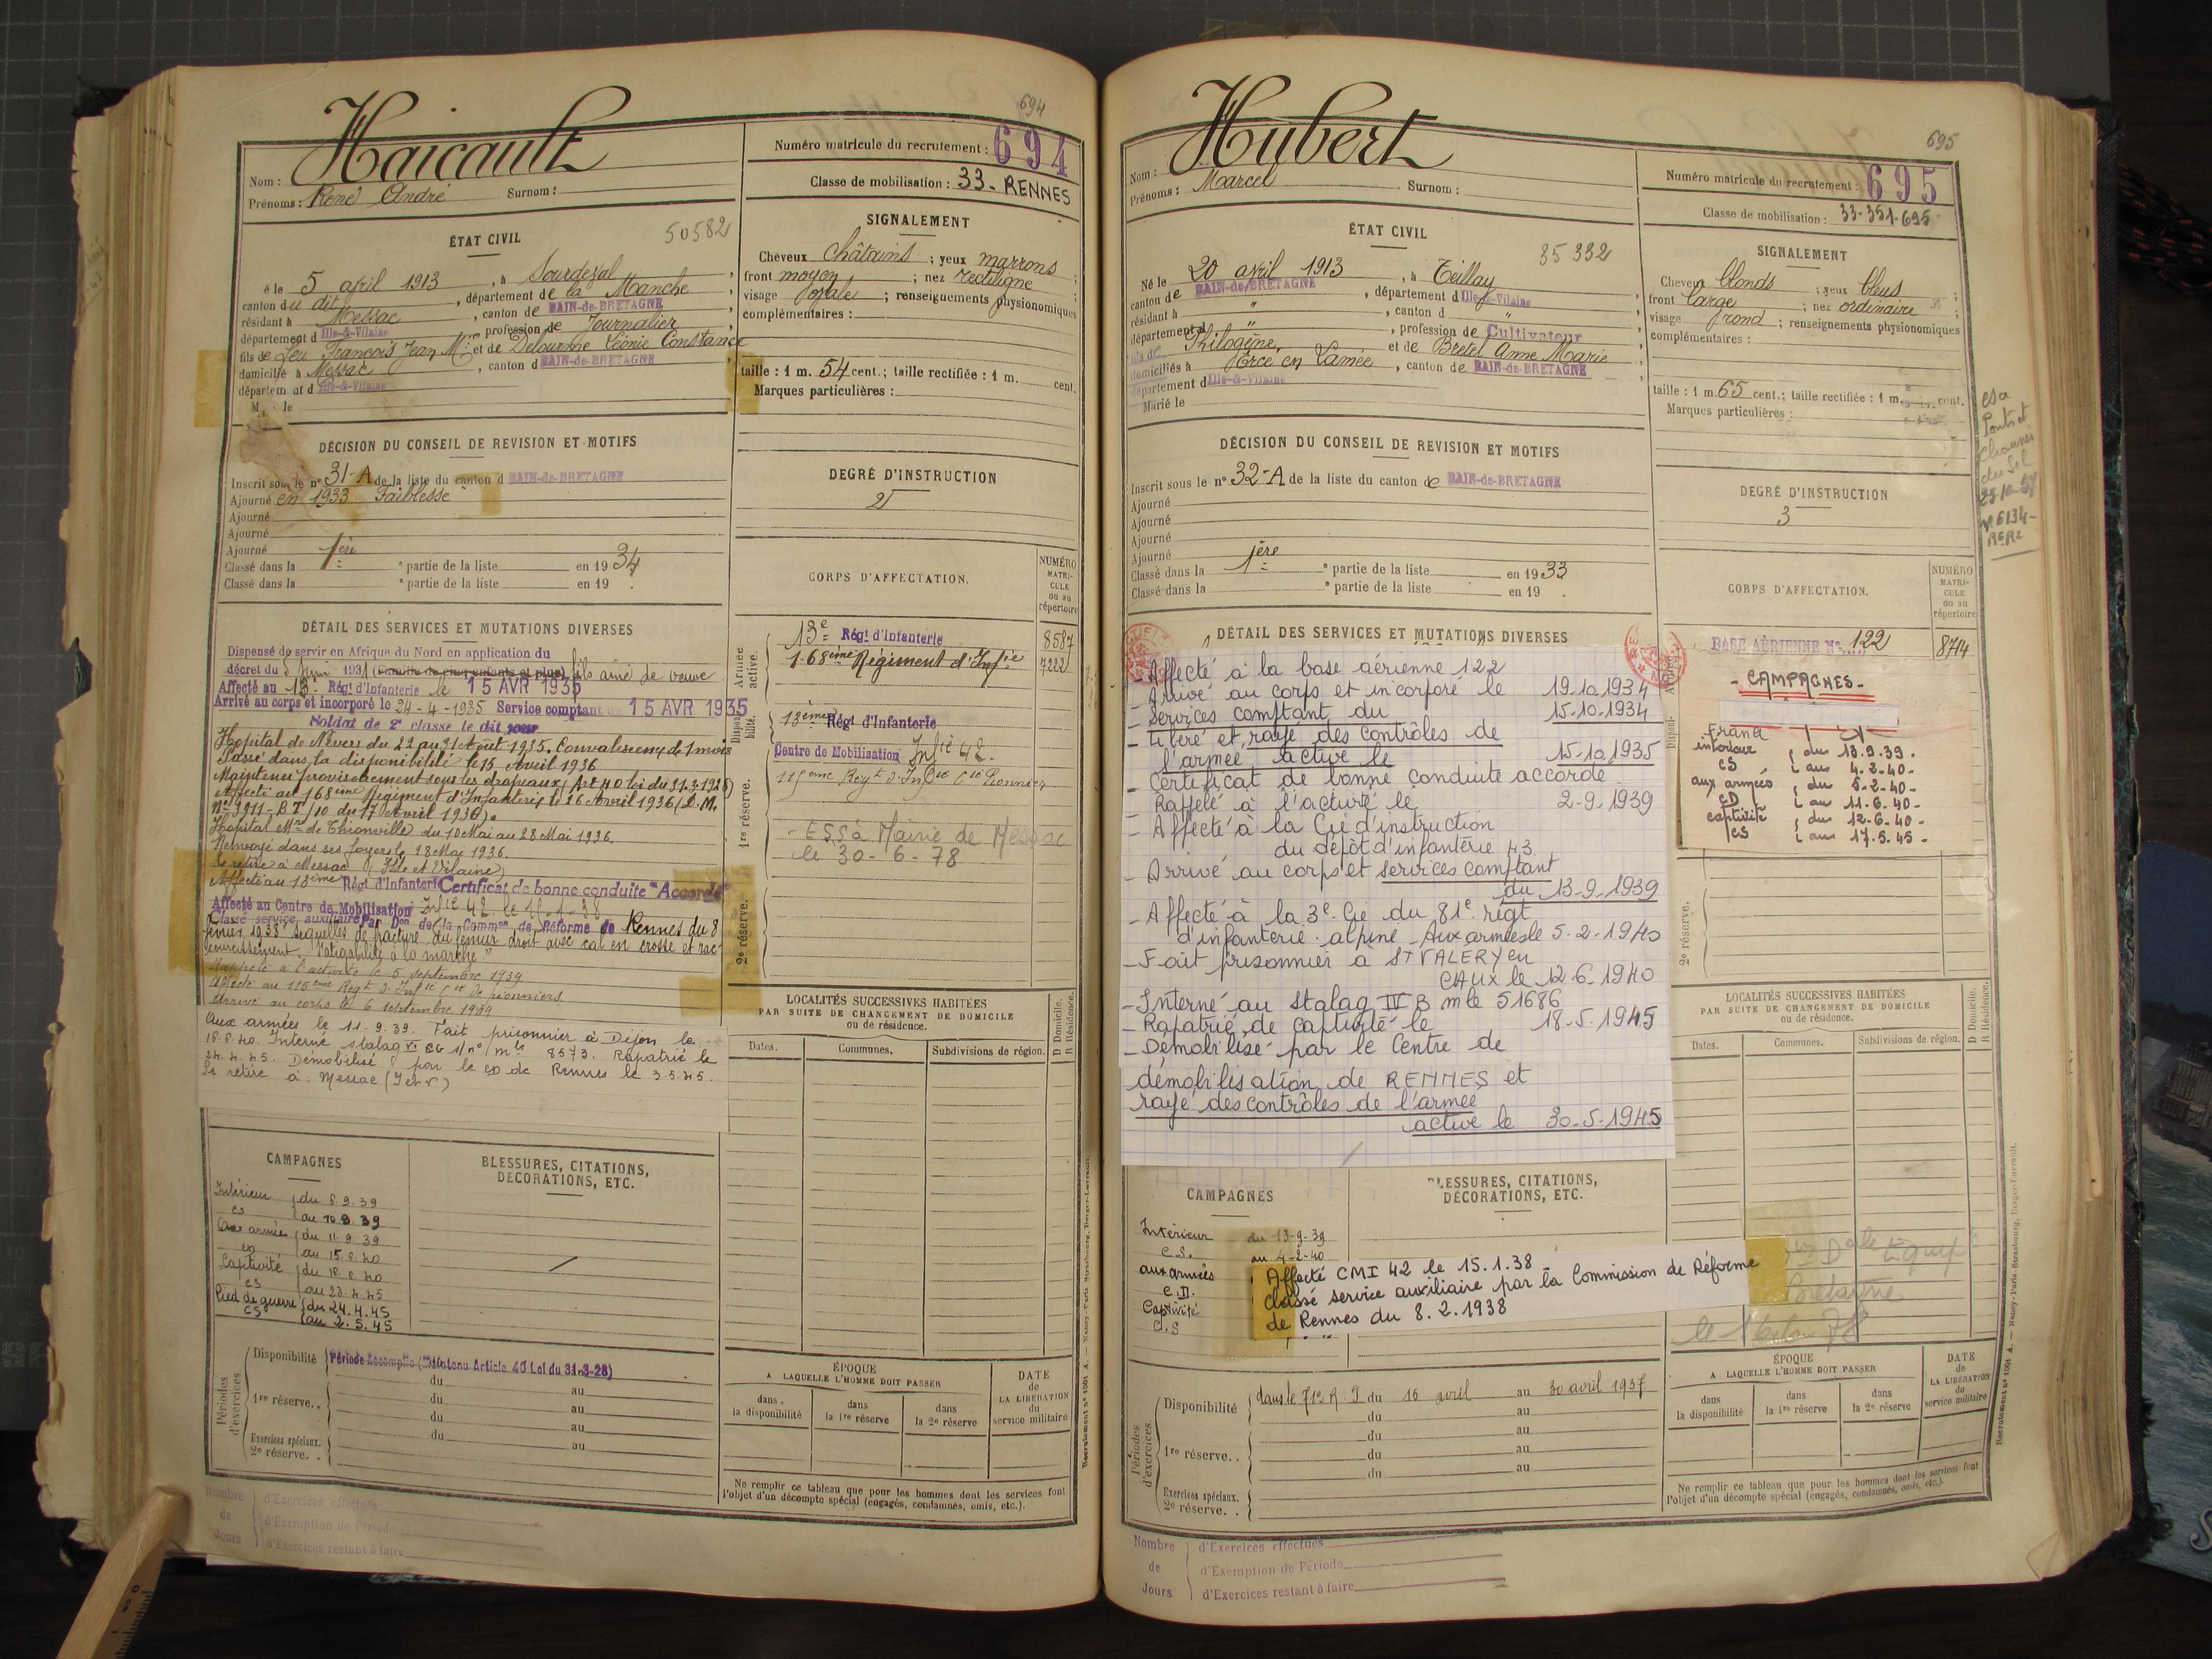 694
Haicault
Nom :
Prénoms : René André Surnom :
Numéro matricule du recrutement : 694
Classe de mobilisation : 33 - RENNES
ÉTAT CIVIL
50582
é le 5 avril 1913, à Sourdeval,
canton du dit, département de la Manche,
résidant à Messac, canton de BAIN-de-BRETAGNE
département d Ille-&-Vilaine, profession de Journalier,
fils de feu François Jean M ie et de Delourme Léonie Constance
domicilié à Messac, canton d BAIN-de-BRETAGNE
département d Ille-&-Vilaine
M le
SIGNALEMENT
Cheveux châtains ; yeux marrons ;
front moyen ; nez rectiligne ;
visage ovale ; renseignements physionomiques
complémentaires :
taille : 1 m. 54 cent.; taille rectifiée : 1 m. cent.
Marques particulières :
DÉCISION DU CONSEIL DE REVISION ET MOTIFS
Inscrit sous le n° 31-A de la liste du canton d BAIN-de-BRETAGNE
Ajourné en 1933 Faiblesse
Ajourné
Ajourné
Ajourné
Classé dans la 1ère e partie de la liste en 1934
Classé dans la e partie de la liste en 19 .
DEGRÉ D'INSTRUCTION
2
CORPS D'AFFECTATION.
NUMÉRO MATRI-CULE ou au répertoire
DÉTAIL DES SERVICES ET MUTATIONS DIVERSES
Dispensé de servir en Afrique du Nord en application du
décret du 5 Juin 193 fils aîné de veuve
Affecté au 13e Régt d'Infanterie le 15 AVR 1935
Arrivé au corps et incorporé le 24-4-1935 Service comptant du 15 AVR 1935
Soldat de 2e classe le dit jour
Hopital de Nevers du 22 au 31 Aout 1935. Convalescence de 1 mois
Passé dans la disponibilité le 15 Avril 1936
Maintenu provisoirement sous les drapeaux (Art 40 loi du 31.3.1928)
Affecté au 168ème Régiment d'Infanterie le 26 Avril 1936 (D.M.
N° 3911-B.T/10 du 17 Avril 1936).
Hopital Mre de Thionville du 10 Mai au 28 Mai 1936.
Renvoyé dans ses foyers le 28 Mai 1936.
Se retire à Messac (Ille et Vilaine)
Affecté au 13ème Régt d'Infanterie Certificat de bonne conduite "Accordé"
Affecté au Centre de Mobilisation Infie 42
Classé service auxiliaire Par Don de la Common de Réforme de Rennes du 8
février 1938 séquelles de fracture du fémur droit avec cal en crosse et rac
courcissement. Fatigabilité à la marche."
Rappelé à l'activité le 5 septembre 1939
Affecté au 115ème Regt d'Infie Cie de pionniers
Arrivé au corps le 6 septembre 1939
Aux armées le 11.9.39. Fait prisonnier à Dijon le
18.6.40. Interné stalag VI 8573. Rapatrié le
24.4.45. Démobilisé par le CD de Rennes le 3.5.45.
Se retire à Messac (I et V)
Armée active.
13e Régt d'Infanterie 8587
168ème Régiment d'Infie 7222
Disponibilité.
13ème Régt d'Infanterie
Centre de Mobilisation Infie 42
1re réserve.
115ème Regt d'Infie Cie Pionniers
- ESS à Mairie de Messac
le 30-6-78
2e réserve.
LOCALITÉS SUCCESSIVES HABITÉES
PAR SUITE DE CHANGEMENT DE DOMICILE
ou de résidence.
D Domicile. R Résidence.
Dates. Communes. Subdivisions de région.
CAMPAGNES
Intérieur du 6.9.39
CS au 10.9.39
Aux armées du 11.9.39
au
Captivité du 18.6.40
CS au 23.4.45
Pied de guerre du 24.4.45
CS au 2.5.45
BLESSURES, CITATIONS,
DÉCORATIONS, ETC.
Périodes d'exercices
Disponibilité Période accomplie (Maintenu Article 40 Loi du 31-3-28)
du au
1re réserve. . du au
du au
Exercices spéciaux. du au
2e réserve. .
ÉPOQUE
A LAQUELLE L'HOMME DOIT PASSER
dans la disponibilité
dans la 1re réserve
dans la 2e réserve
DATE de LA LIBÉRATION du service militaire
Ne remplir ce tableau que pour les hommes dont les services font
l'objet d'un décompte spécial (engagés, condamnés, omis, etc.).
Nombre de Jours
d'Exercices effectués
d'Exemption de Période
d'Exercices restant à faire
Recrutement n° 1061 A. — Nancy-Paris-Strasbourg, Berger-Levrault.
695
Hubert
Nom :
Prénoms : Marcel Surnom :
Numéro matricule du recrutement : 695
Classe de mobilisation : 33-351-695
ÉTAT CIVIL
35332
Né le 20 avril 1913, à Teillay
canton de BAIN-de-BRETAGNE, département d Ille-&-Vilaine
résidant à ", canton d "
département d ", profession de Cultivateur,
fils de Philogène et de Bretel Anne Marie
domiciliés à Ercé en Lamée, canton de BAIN-de-BRETAGNE
département d Ille-&-Vilaine
Marié le
SIGNALEMENT
Cheveux blonds ; yeux bleus
front large ; nez ordinaire ;
visage rond ; renseignements physionomiques
complémentaires :
taille : 1 m. 65 cent.; taille rectifiée : 1 m. cent.
Marques particulières :
esa
Ponts et
chaussées
du Sel
n° 6134
DÉCISION DU CONSEIL DE REVISION ET MOTIFS
Inscrit sous le n° 32-A de la liste du canton de BAIN-de-BRETAGNE
Ajourné
Ajourné
Ajourné
Ajourné
Classé dans la 1ère e partie de la liste en 1933
Classé dans la e partie de la liste en 19 .
DEGRÉ D'INSTRUCTION
3
CORPS D'AFFECTATION.
NUMÉRO MATRI-CULE ou au répertoire
BASE AÉRIENNE N° 122 8744
DÉTAIL DES SERVICES ET MUTATIONS DIVERSES
- Affecté à la base aérienne 122
- Arrivé au corps et incorporé le 19.10.1934
- Services comptant du 15.10.1934
- Libéré et rayé des contrôles de
l'armée active le 15.10.1935
- Certificat de bonne conduite accordé
Rappelé à l'activité le 2-9-1939
- Affecté à la Cie d'instruction
du dépôt d'infanterie 43
- Arrivé au corps et services comptant
du 13-9-1939
- Affecté à la 3e Cie du 81e régt
d'infanterie alpine - Aux armées le 5-2-1940
- Fait prisonnier à St VALERY en
CAUX le 12-6-1940
- Interné au Stalag IV B mle 51686
- Rapatrié de captivité le 18-5-1945
- Démobilisé par le Centre de
démobilisation de RENNES et
rayé des contrôles de l'armée
active le 30-5-1945
- CAMPAGNES -
intérieur du 13.9.39.
CS au 4-2-40-
aux armées du 5-2-40-
CD au 11-6-40-
captivité du 12-6-40-
CS au 17.5.45-
2e réserve.
LOCALITÉS SUCCESSIVES HABITÉES
PAR SUITE DE CHANGEMENT DE DOMICILE
ou de résidence.
D Domicile. R Résidence.
Dates. Communes. Subdivisions de région.
CAMPAGNES
Intérieur du 13-9-39
C.S. au 4-2-40
aux armées
C.D.
Captivité
C.S
BLESSURES, CITATIONS,
DÉCORATIONS, ETC.
Affecté CMI 42 le 15.1.38 -
Classé service auxiliaire par la Commission de Réforme
de Rennes du 8.2.1938
Bretagne
Périodes d'exercices
Disponibilité dans le 71e R.I du 16 avril au 30 avril 1937
du au
1re réserve. . du au
du au
du au
Exercices spéciaux.
2e réserve. .
ÉPOQUE
A LAQUELLE L'HOMME DOIT PASSER
dans la disponibilité
dans la 1re réserve
dans la 2e réserve
DATE de LA LIBÉRATION du service militaire
Ne remplir ce tableau que pour les hommes dont les services font
l'objet d'un décompte spécial (engagés, condamnés, omis, etc.).
Nombre de Jours
d'Exercices effectués
d'Exemption de Période
d'Exercices restant à faire
Recrutement n° 1061 A. — Nancy-Paris-Strasbourg, Berger-Levrault.